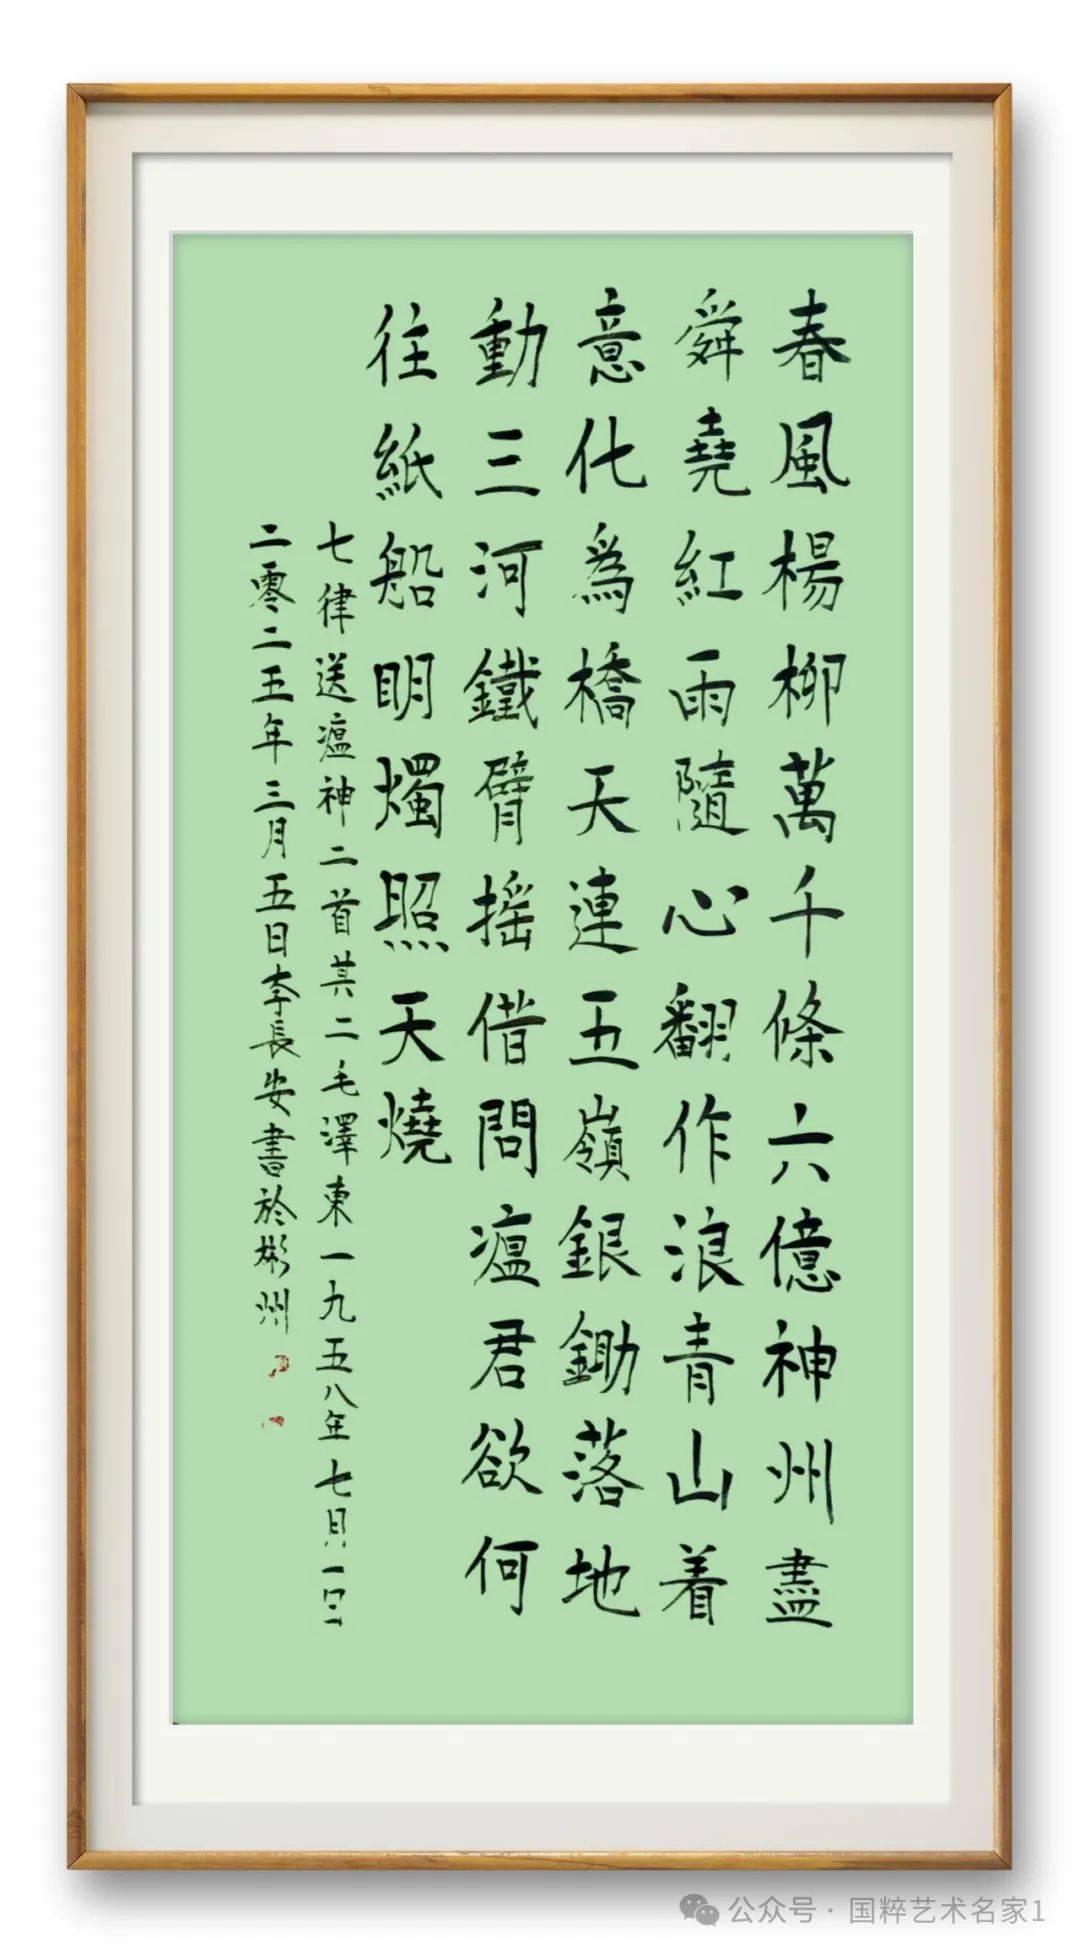 春風楊柳萬千條六億神州盡
舜堯紅雨隨心翻作浪青山着
意化為橋天連五嶺銀鋤落地
動三河鐵臂摇借問瘟君欲何
往紙船明燭照天燒
七律送瘟神二首其二毛澤東一九五八年七月一日
二零二五年三月五日李長安書於彬州
公众号·国粹艺术名家1